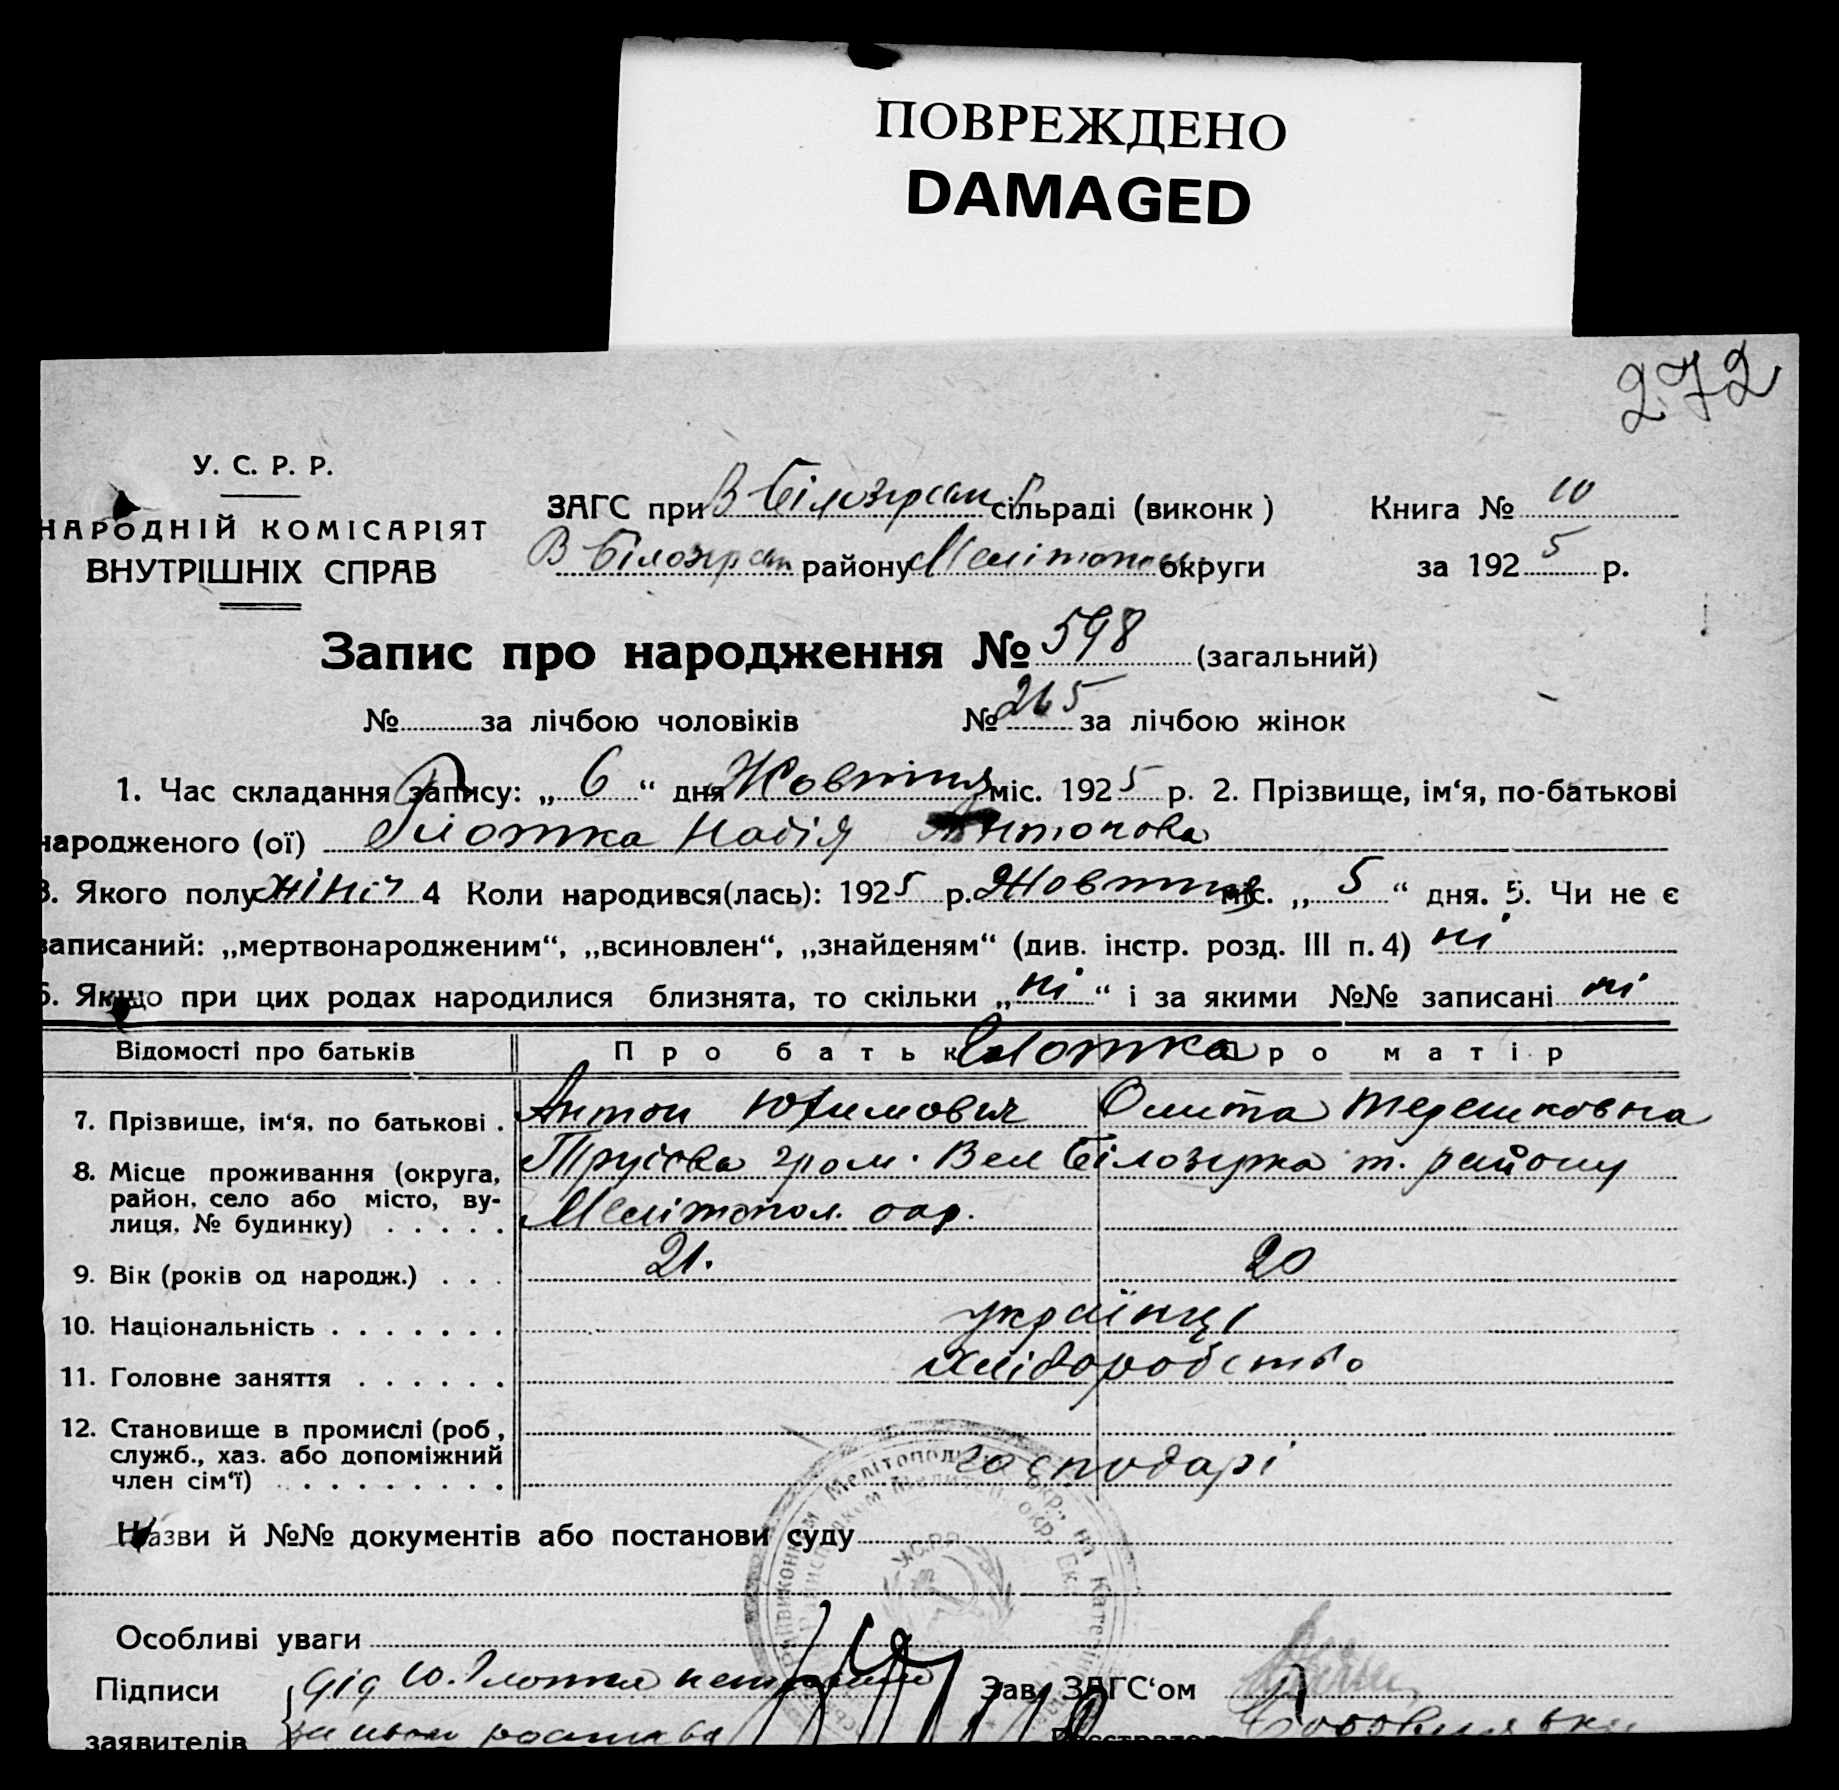 ПОВРЕЖДЕНО
DAMAGED
272
У. С. Р. Р.
НАРОДНІЙ КОМІСАРІЯТ
ВНУТРІШНІХ СПРАВ
ЗАГС при В Білозірськ сільраді (виконк)
В Білозірськ району Мелітопольс округи
Книга № 10
за 1925 р.
Запис про народження № 598 (загальний)
№ за лічбою чоловіків № 265 за лічбою жінок
1. Час складання запису: „ 6 “ дня Жовтня міс. 1925 р. 2. Прізвище, ім‘я, по-батькові
народженого (ої) Глотка Надія Антонова
3. Якого полу жіноч 4 Коли народився(лась): 1925 р. Жовтня міс. „ 5 “ дня. 5. Чи не є
записаний: „мертвонародженим“, „всиновлен“, „знайденям“ (див. інстр. розд. III п. 4) ні
6. Якщо при цих родах народилися близнята, то скільки „ ні “ і за якими №№ записані ні
Відомості про батьків Про батьк Глотка Про матір
7. Прізвище, ім‘я, по батькові . Антон Юхимович
8. Місце проживання (округа, гром. Вел Білозірка т. району
район, село або місто, ву-
лиця, № будинку) . . . . . Мелітопол. окр.
9. Вік (років од народж.) . . . 21. 20
10. Національність . . . . . . . українці
11. Головне заняття . . . . . . хліборобство
12. Становище в промислі (роб,
служб., хаз. або допоміжний господарі
член сім‘ї) . . . . . . . . .
Назви й №№ документів або постанови суду
У.С.Р.Р.
Особливі уваги
Підписи дід Ю. Глотка Зав. ЗАГС‘ом
заявителів Реєстратор